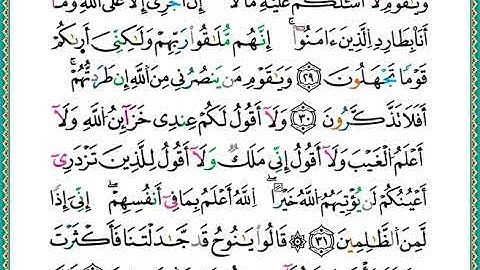 وَيَٰقَوْمِ لَآ أَسْـَٔلُكُمْ عَلَيْهِ مَالًا إِنْ أَجْرِىَ إِلَّا عَلَى ٱللَّهِ وَمَآ
أَنَا۠ بِطَارِدِ ٱلَّذِينَ ءَامَنُوٓا۟ ۚ إِنَّهُم مُّلَٰقُوا۟ رَبِّهِمْ وَلَٰكِنِّىٓ أَرَىٰكُمْ
قَوْمًا تَجْهَلُونَ ﴿٢٩﴾ وَيَٰقَوْمِ مَن يَنصُرُنِى مِنَ ٱللَّهِ إِن طَرَدتُّهُمْ ۚ
أَفَلَا تَذَكَّرُونَ ﴿٣٠﴾ وَلَآ أَقُولُ لَكُمْ عِندِى خَزَآئِنُ ٱللَّهِ وَلَآ
أَعْلَمُ ٱلْغَيْبَ وَلَآ أَقُولُ إِنِّى مَلَكٌ وَلَآ أَقُولُ لِلَّذِينَ تَزْدَرِىٓ
أَعْيُنُكُمْ لَن يُؤْتِيَهُمُ ٱللَّهُ خَيْرًا ۖ ٱللَّهُ أَعْلَمُ بِمَا فِىٓ أَنفُسِهِمْ ۖ إِنِّىٓ إِذًا
لَّمِنَ ٱلظَّٰلِمِينَ ﴿٣١﴾ ۞ قَالُوا۟ يَٰنُوحُ قَدْ جَٰدَلْتَنَا فَأَكْثَرْتَ